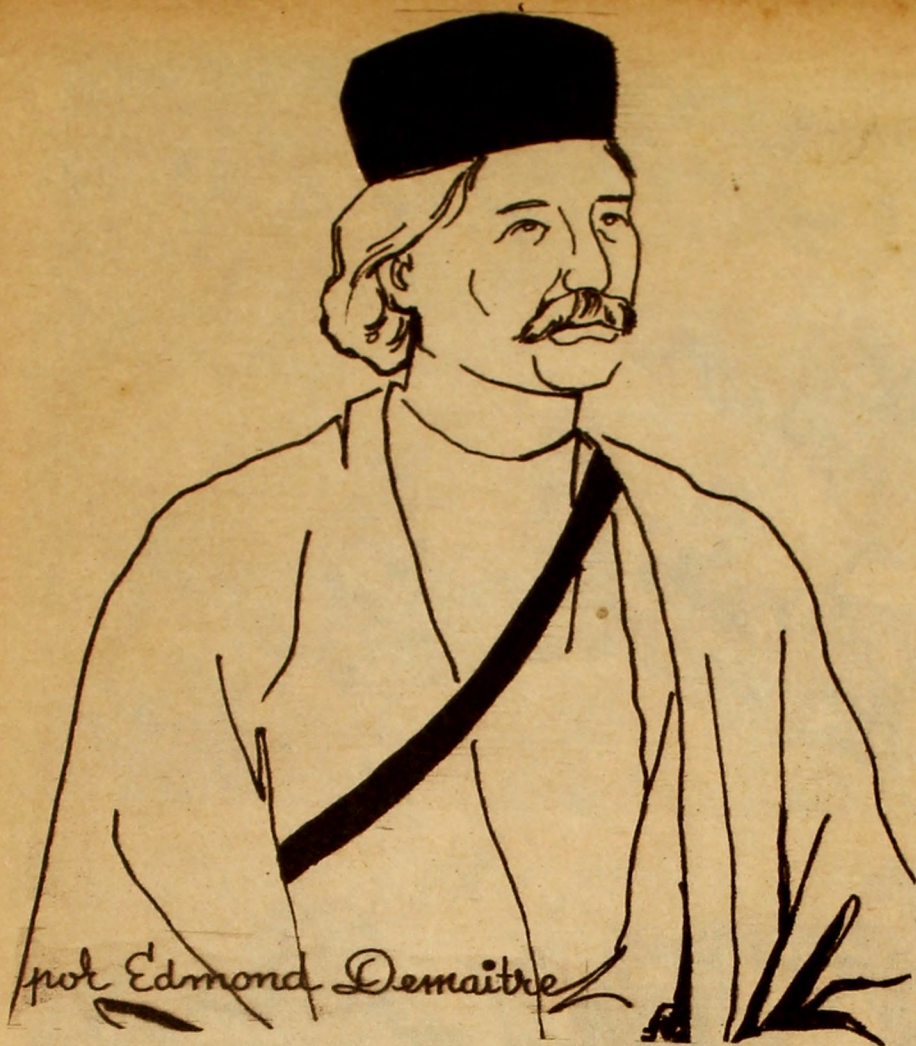 por Edmond Demaitre